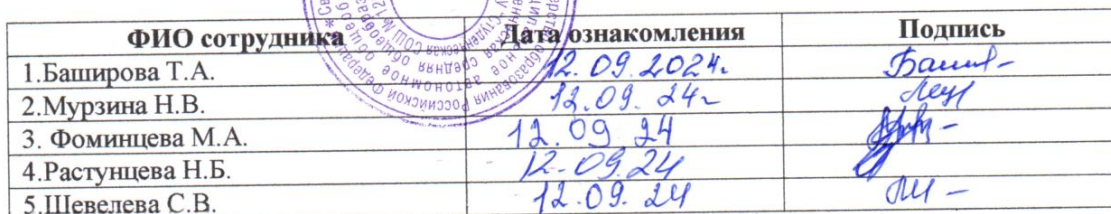 ФИО сотрудника Дата ознакомления Подпись
1.Баширова Т.А. 12.09.2024г
2.Мурзина Н.В. 12.09.24г
3. Фоминцева М.А. 12.09.24
4.Растунцева Н.Б. 12.09.24
5.Шевелева С.В. 12.09.24